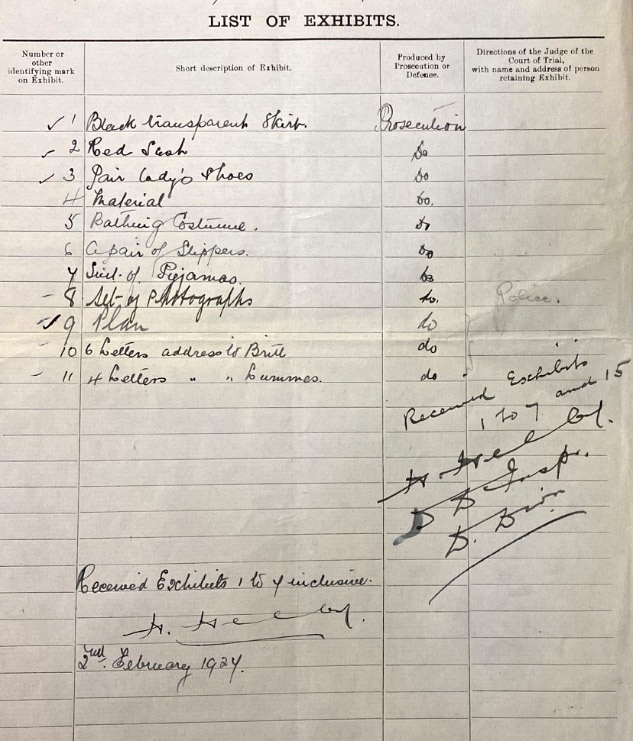 LIST OF EXHIBITS.
Number or other identifying mark on Exhibit.
Short description of Exhibit.
Produced by Prosecution or Defence.
Directions of the Judge of the Court of Trial, with name and address of person retaining Exhibit.
1 Black transparent Skirt. Prosecution
2 Red Sash do
3 Pair Lady's Shoes do
4 Material do.
5 Bathing Costume. do
6 A pair of Slippers. do
7 Suit of Pyjamas. do
8 Set of Photographs do. Police.
9 Plan do
10 6 Letters address to Britt do
11 4 Letters " " Lummes. do
Received Exhibits
1 to 7 and 15
D D Insp.
D. Divn
Received Exhibits 1 to 7 inclusive.
2nd. February 1927.